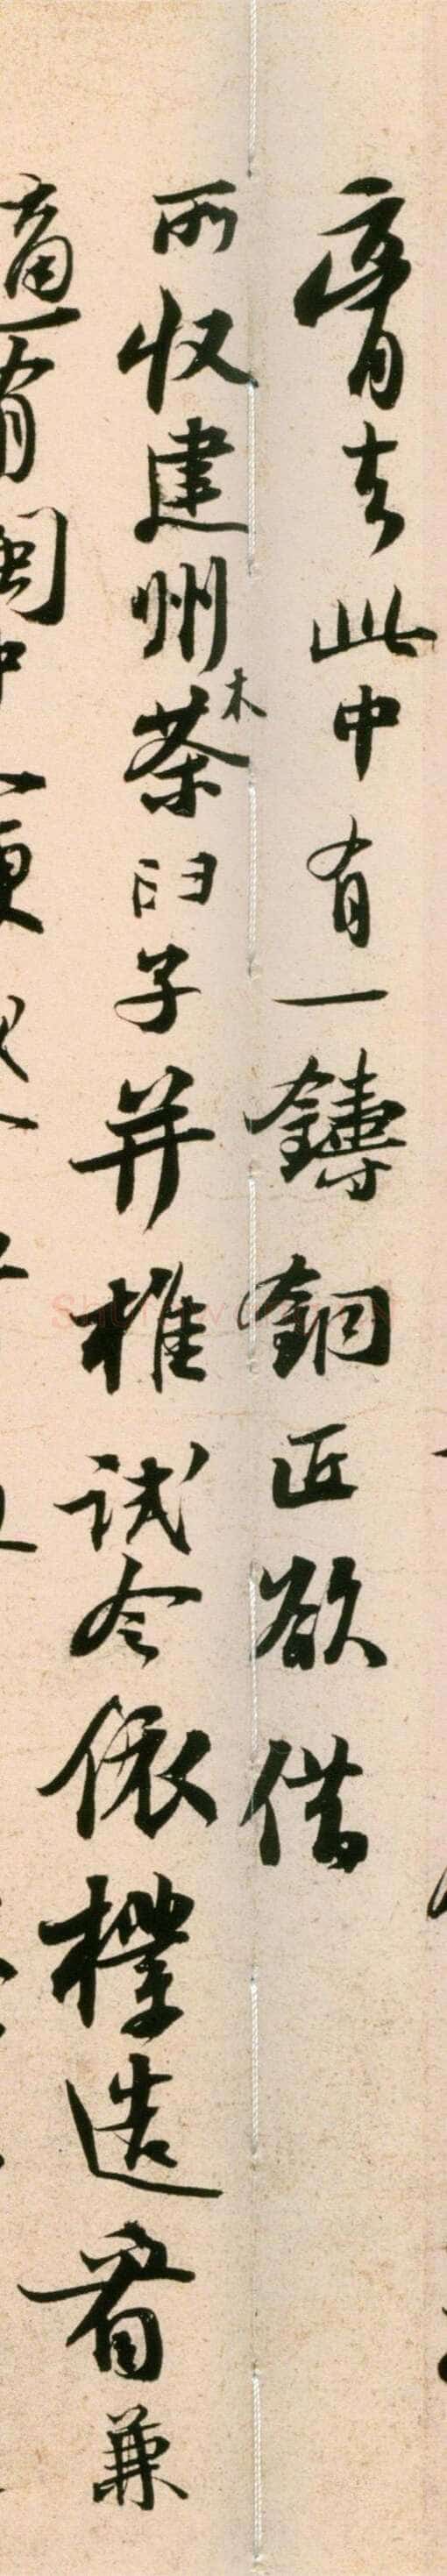 厝去此中有一鑄銅匠欲借
所收建州木茶臼子并椎試令依樣造看兼
適有閩中人便